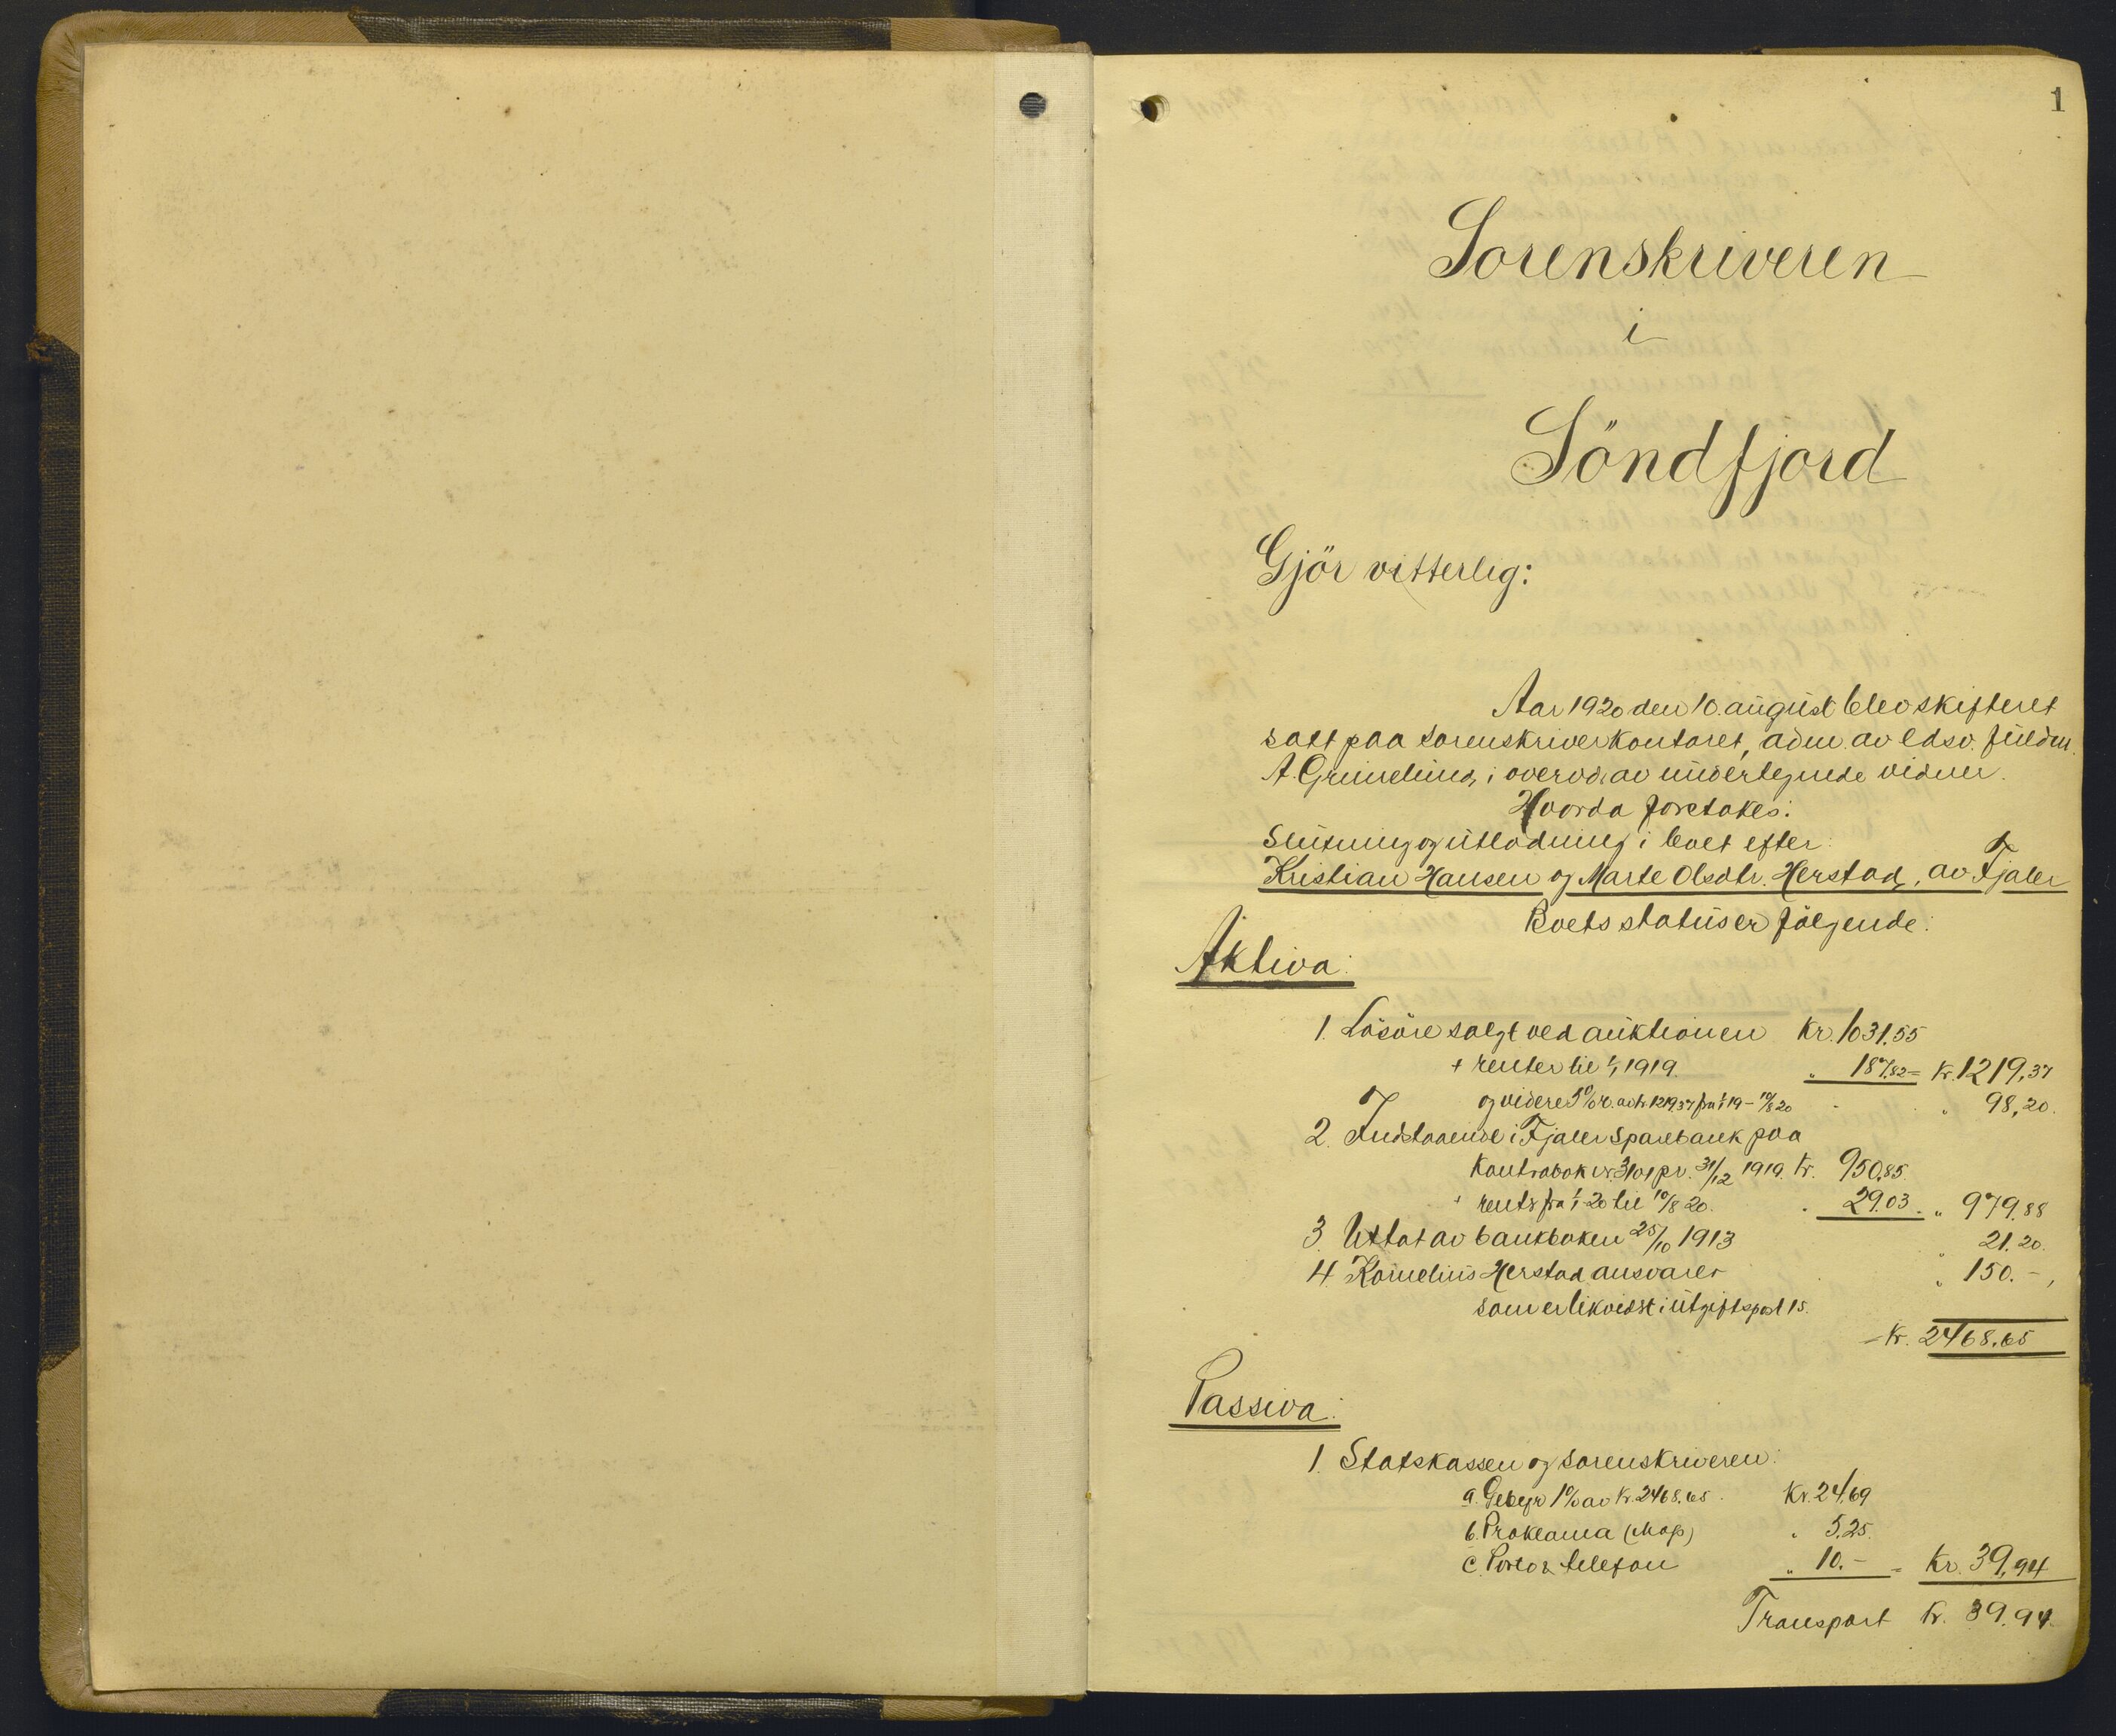 1
Sorenskriveren
i
Söndfjord
Gjör vitterlig:
Aar 1920 den 10. august blev skifteret
satt paa sorenskriverkontoret, adm. av edsv. fuldm.
A. Grimelund, i overv. av undertegnede vidner.
Hvorda foretokes:
Slutning og utlodning i boet efter:
Kristian Hansen og Marte Olsdtr. Herstad, av Fjaler
Boets status er fölgende:
Aktiva:
1. Lösöre solgt ved auktionen Kr. 1031.55
+ renter til 1/1 1919. " 187.82 = Kr. 1219,37
og videre 5% r. av kr. 1219,37 fra 1/1 19 - 10/8 20 - " 98,20.
2. Indstaaende i Fjaler Sparebank paa
Kontrabok nr. 3101 pr. 31/12 1919. Kr. 950,85.
+ rente fra 1/1 20 til 10/8 20. " 29.03. " 979.88
3. Uttat av bankboken 25/10 1913 " 21.20.
4. Kornelius Herstad ansvarer " 150.-,
som er likvidert i utgiftspost 15.
Kr. 2468.65
Passiva:
1. Statskassen og sorenskriveren:
a. Gebyr 1% av Kr. 2468.65. Kr. 24,69
b. Proklama " 5,25.
c. Porto & telefon " 10.- = Kr. 39,94
Transport Kr. 39.94.